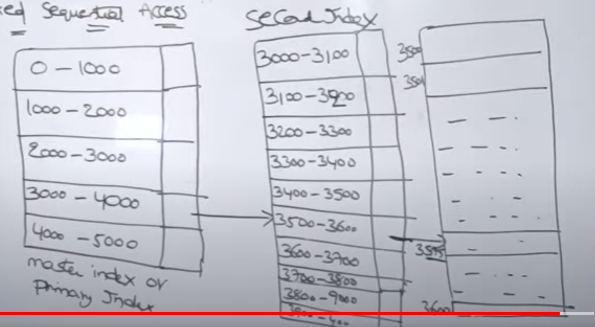 ed Sequential Access
0 - 1000
1000 - 2000
2000 - 3000
3000 - 4000
4000 - 5000
master index or
Primary Index
Second Index
3000 - 3100
3100 - 3200
3200 - 3300
3300 - 3400
3400 - 3500
3500 - 3600
3600 - 3700
3700 - 3800
3800 - 9000
3500
3501
3595
3600